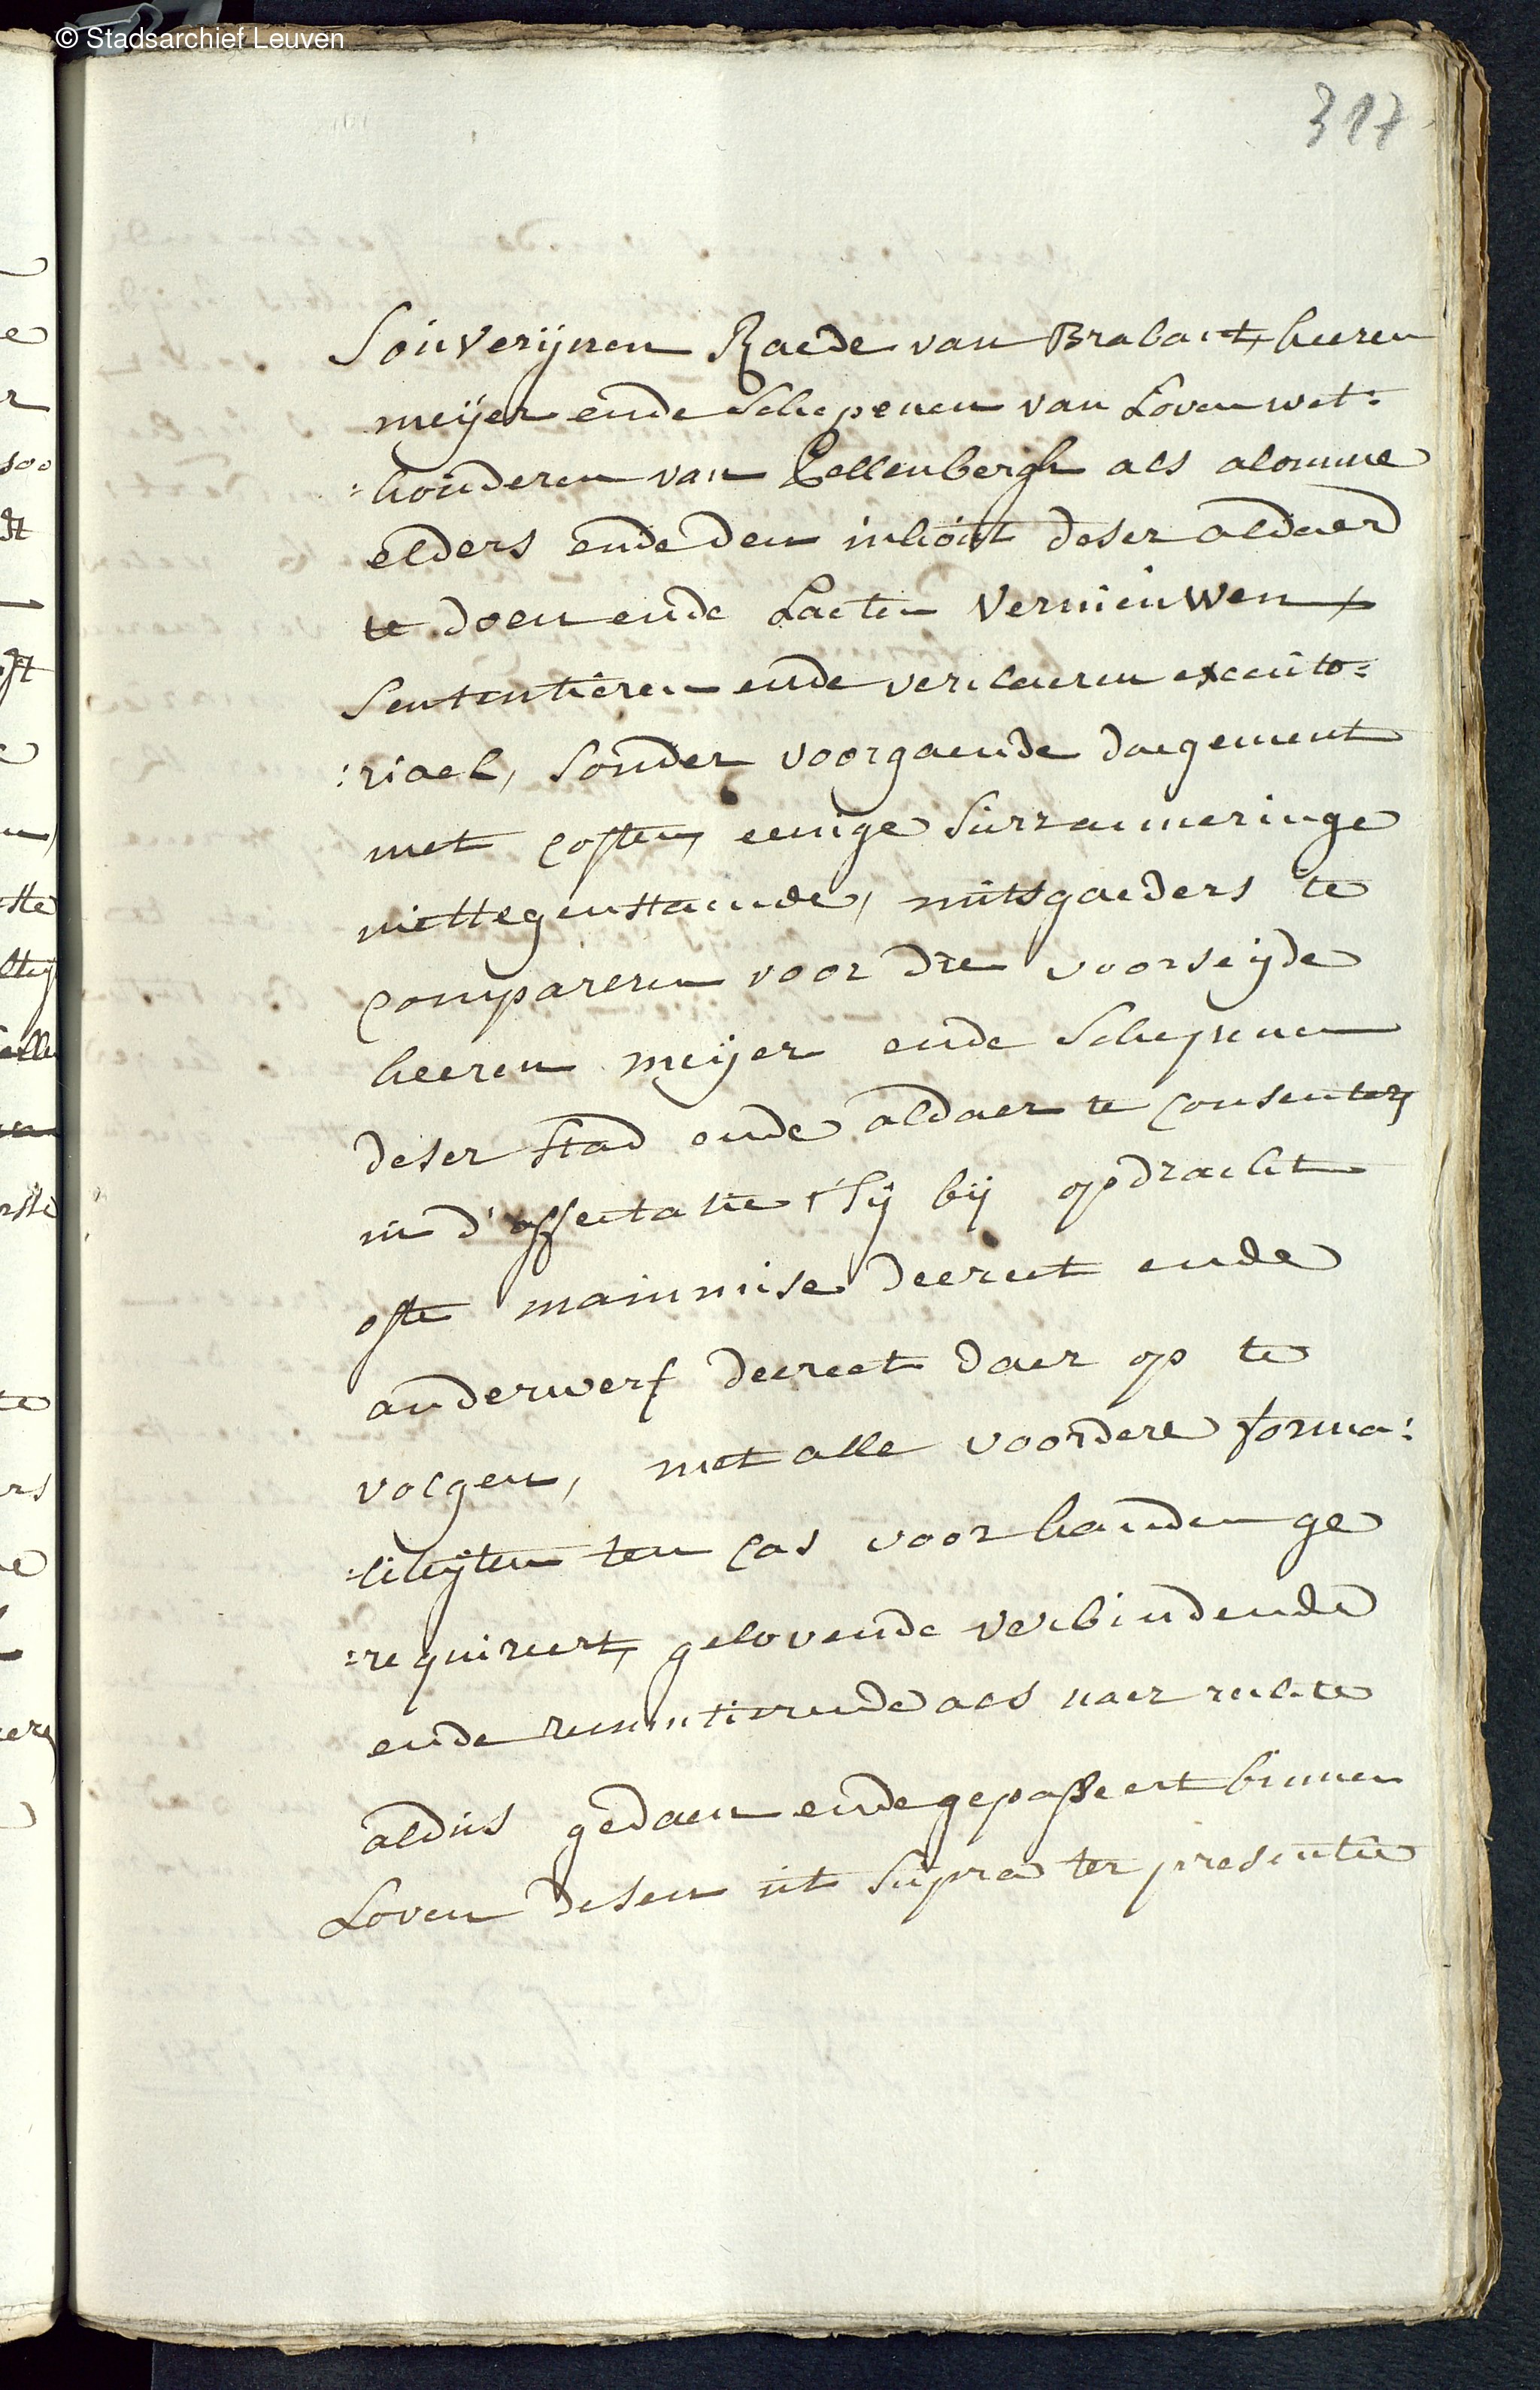 © Stadsarchief Leuven
317
Souverijnen Raede van Brabant, heeren
meijer ende Schepenen van Loven wet=
=houderen van Pellenbergh als alomme
elders ende den inhout deser aldaer
te doen ende Laeten vernieuwen
Sententieren ende verclaeren executo=
:riael, sonder voorgaende daegement
met costen, eenige surranneringe
niettegenstaende, mitsgaeders te
compareren voor die voorseijde
heeren meijer ende Schepenen
deser stad ende aldaer te consenteren
in d'affectatie 't sij bij opdracht
ofte mainmise decreet ende
anderwerf decreet daer op te
volgen, met alle voordere forma:
=liteijten ten cas voor handen ge
=requireert, gelovende verbindende
ende renuntierende als naer rechte
aldus gedaen ende gepasseert binnen
Loven desen ut supra ter presentie